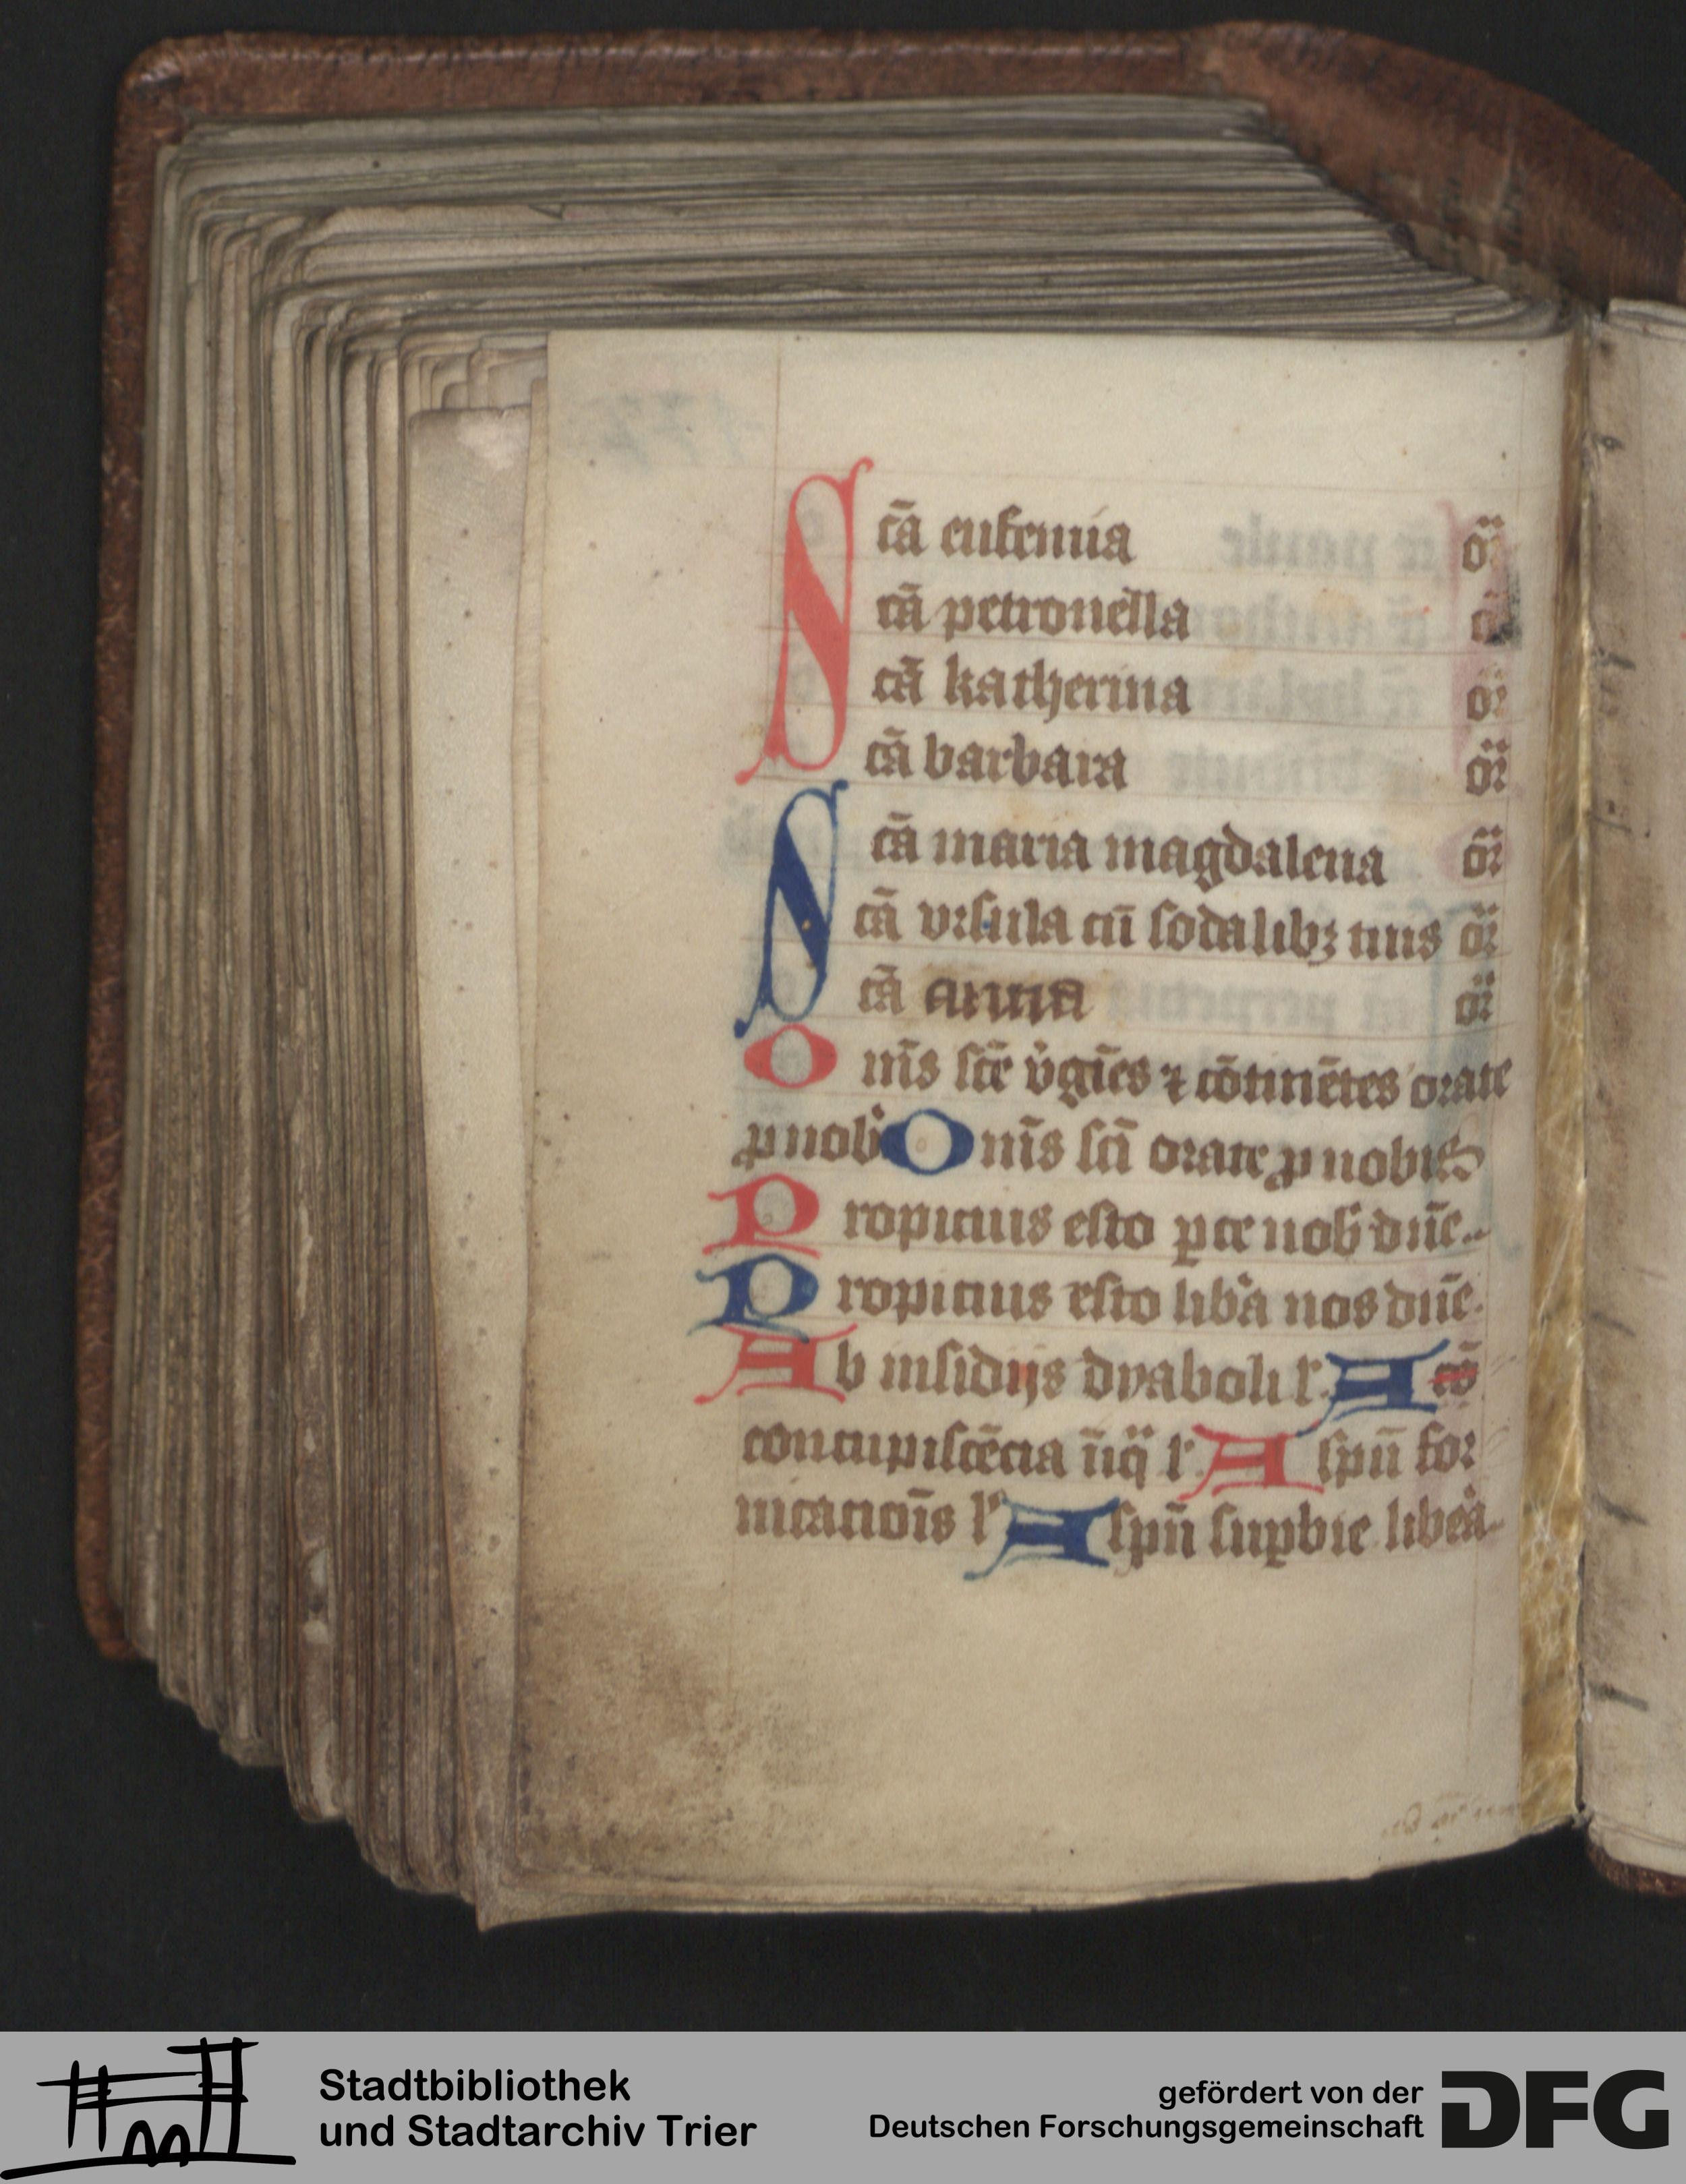 Scā eufemia or̄
cā petronella or̄
cā katherina or̄
cā barbara or̄
Scā maria magdalena or̄
cā vrsula cū sodalibꝫ tuis or̄
cā anna or̄
Om̄s sc̄e v̇gīes ⁊ cōtinētes orate
ꝓ nob Om̄s sc̄i orate ꝓ nobis
Propicius esto ꝑce nob dn̄e
Propicius esto libᵃa nos dn̄e.
Ab insidijs dyaboli lʳ. A cō
concupiscēcia īiq̈ lʳ A sp̄u for
nicacīois lʳ A sp̄u suꝑbie libea
Stadtbibliothek
und Stadtarchiv Trier
gefördert von der
Deutschen Forschungsgemeinschaft
DFG